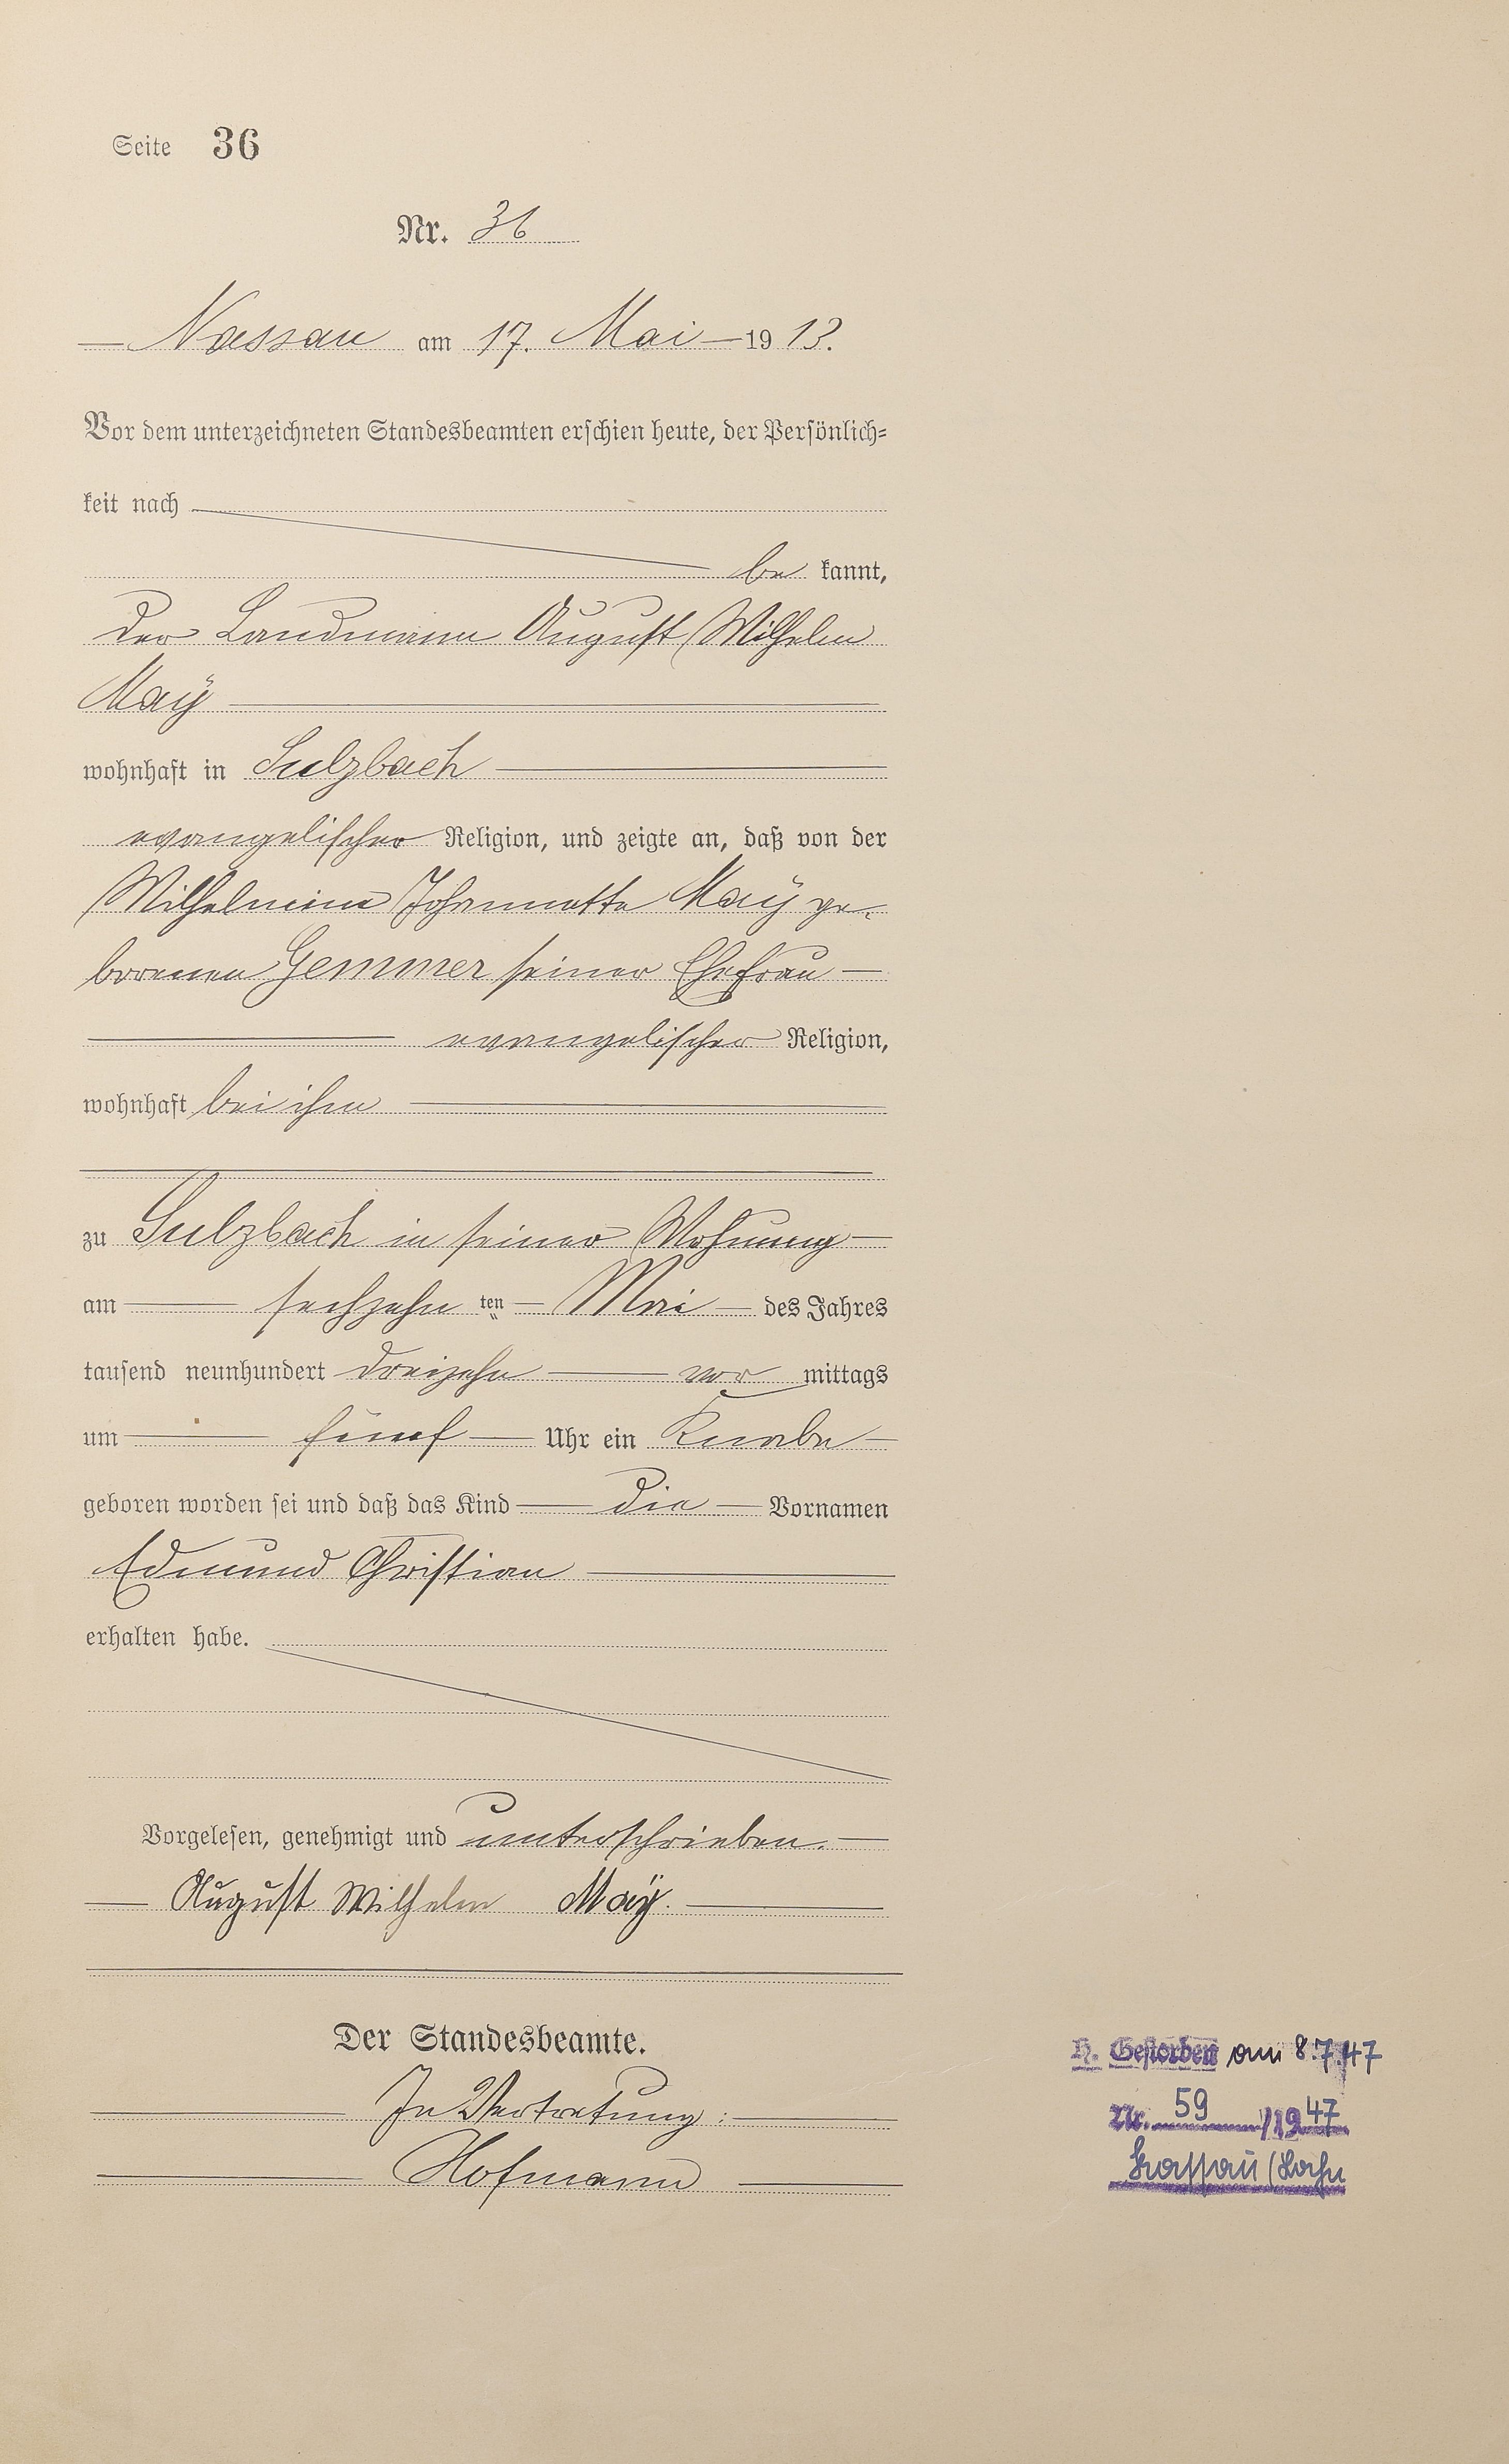 Seite 36
Nr. 36
Nassau am 17. Mai 1913.
Vor dem unterzeichneten Standesbeamten erschien heute, der Persönlich-
keit nach
be kannt,
der Landmann August Wilhelm
Maÿ
wohnhaft in Sulzbach
evangelischer Religion, und zeigte an, daß von der
Wilhelmine Johannette Maÿ ge-
borenen Gemmer seiner Ehefrau
evangelischer Religion,
wohnhaft bei ihm
zu Sulzbach in seiner Wohnung
am sechzehn ten Mai des Jahres
tausend neunhundert dreizehn vor mittags
um fünf Uhr ein Knabe
geboren worden sei und daß das Kind die Vornamen
Edmund Christian
erhalten habe.
Vorgelesen, genehmigt und unterschrieben.
August Wilhelm Maÿ.
Der Standesbeamte.
In Vertretung:
Hofmann
H. Gestorben am 8.7.47
Nr. 59 /1947
Nassau/Lahn